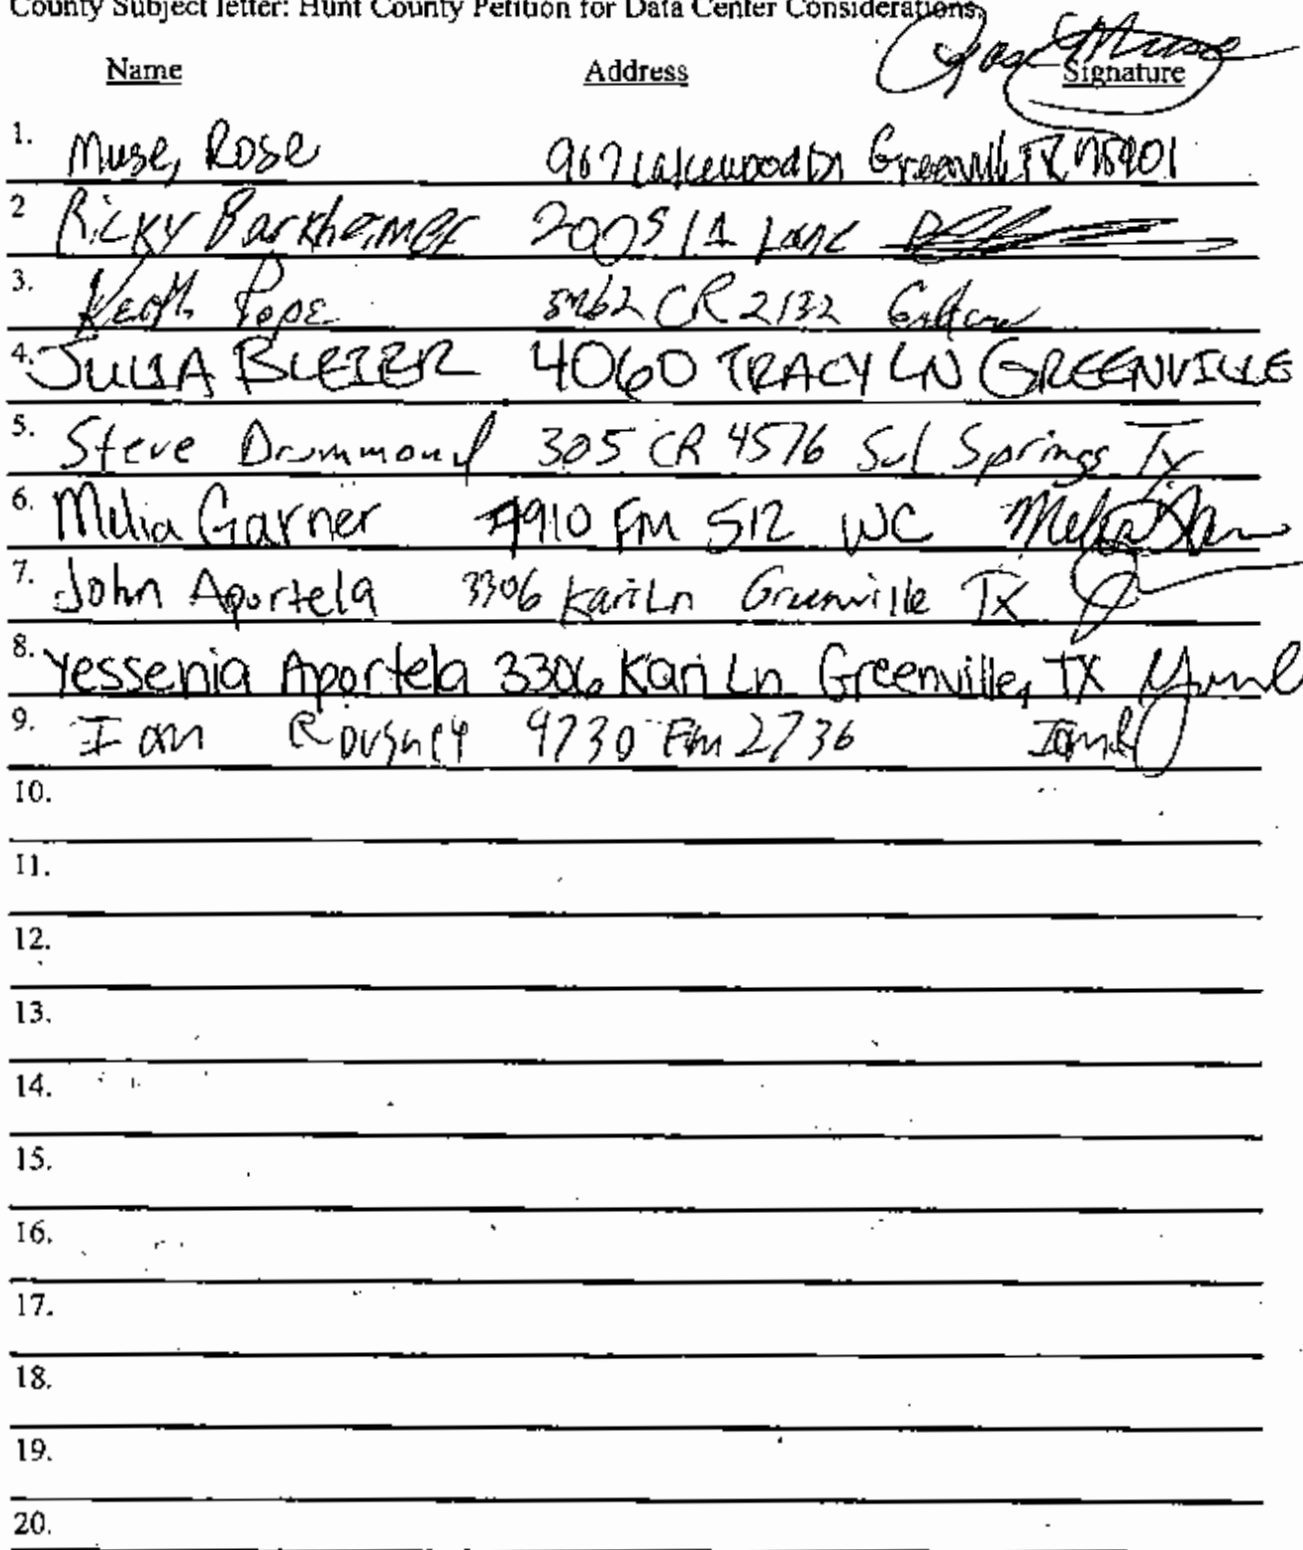 County Subject letter: Hunt County Petition for Data Center Considerations.
Name Address Signature
1. Muse, Rose 967 Lakewood Dr Greenville TX 75401
2 Ricky Barkheimer 2005 Lane
3. Keith Pope CR 2132
4. JULIA BLEIER 4060 TRACY LN GREENVILLE
5. Steve Drummond 305 CR 4576 Sul Springs TX
6. Melia Garner 4910 FM 512 WC
7. John Aportela 3306 Kari Ln Greenville TX
8. Yessenia Aportela 3306 Kari Ln Greenville, TX
9. Ian 9730 Fm 2736
10.
11.
12.
13.
14.
15.
16.
17.
18.
19.
20.